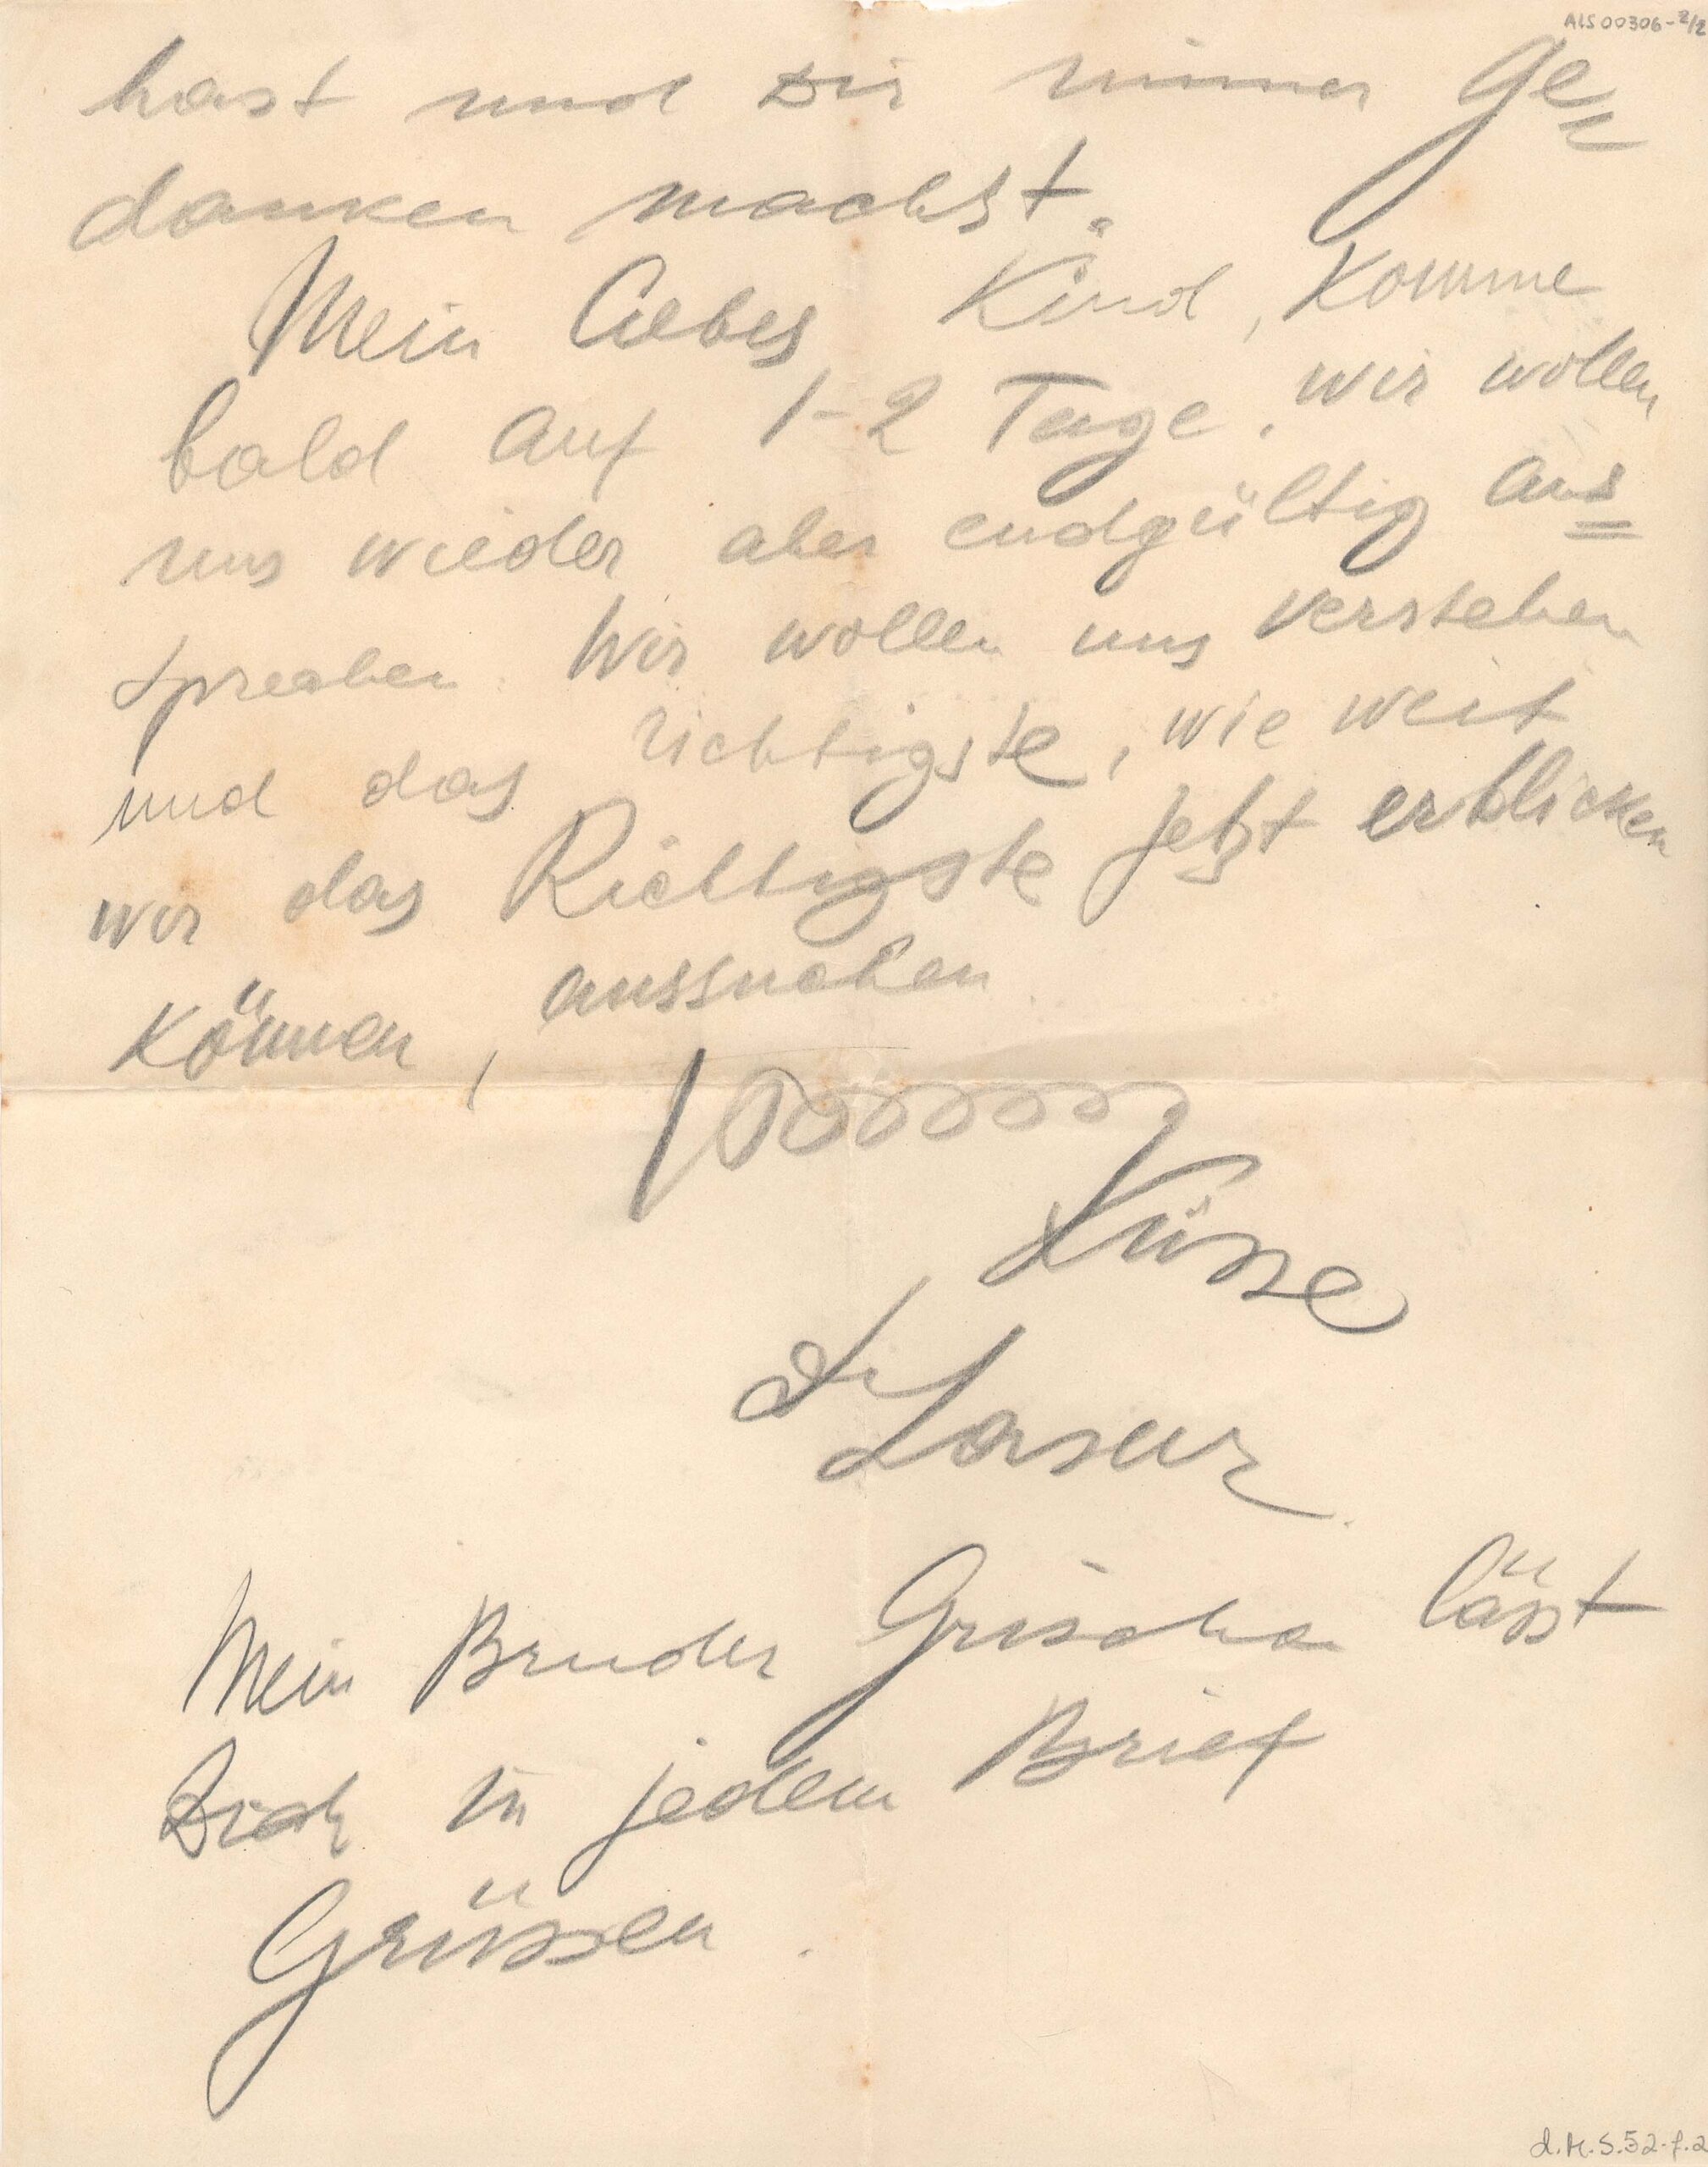 ALS 00306-2/2
hast und Dir immer Ge=
danken machst.
Mein liebes Kind, komme
bald auf 1-2 Tage. Wir wollen
uns wieder aber endgültig aus=
sprechen. Wir wollen uns verstehen
und das richtigste, wie weit
wir das Richtigste jetzt erblicken
können, aussuchen.
10000000
Küsse
Dr
Mein Bruder Grischa lässt
Dich in jedem Brief
Grüssen.
d.M.S.52-f.2